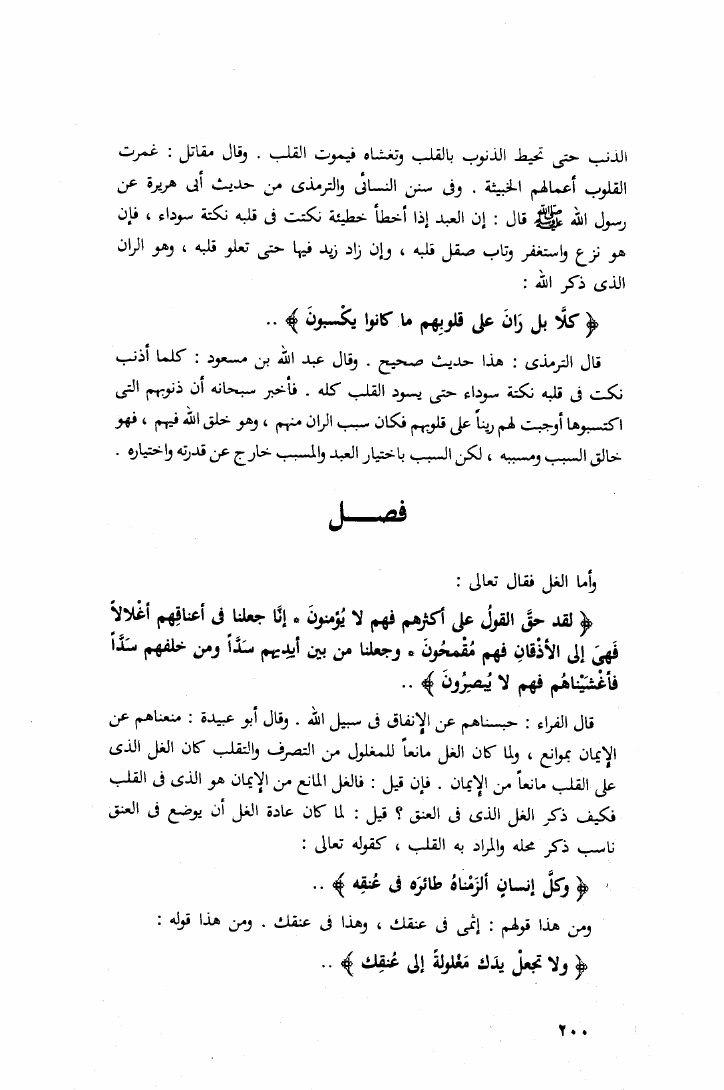 الذنب حتى تحيط الذنوب بالقلب وتغشاه فيموت القلب . وقال مقاتل : غمرت
القلوب أعمالهم الخبيثة . وفى سنن النسائى والترمذى من حديث أبى هريرة عن
رسول الله ﷺ قال : إن العبد إذا أخطأ خطيئة نكتت فى قلبه نكتة سوداء ، فإن
هو نزع واستغفر وتاب صقل قلبه ، وإن زاد زيد فيها حتى تعلو قلبه ، وهو الران
الذى ذكر الله :
﴿ كلَّا بل رَانَ على قلوبِهم ما كانوا يكْسبونَ ﴾ ..
قال الترمذى : هذا حديث صحيح . وقال عبد الله بن مسعود : كلما أذنب
نكت فى قلبه نكتة سوداء حتى يسود القلب كله . فأخبر سبحانه أن ذنوبهم التى
اكتسبوها أوجبت لهم ريناً على قلوبهم فكان سبب الران منهم ، وهو خلق الله فيهم ، فهو
خالق السبب ومسببه ، لكن السبب باختيار العبد والمسبب خارج عن قدرته واختياره .
فصــــل
وأما الغل فقال تعالى :
﴿ لقد حقَّ القولُ على أكثرهم فهم لا يُؤمنونَ * إنَّا جعلنا فى أعناقِهم أغْلالاً
فَهىَ إلى الأذْقانِ فهم مُقْمحُونَ * وجعلنا من بين أيديهم سَدَّاً ومن خلفهم سَدَّاً
فأغْشَيْناهُم فهم لا يُبصِرُونَ ﴾ ..
قال الفراء : حبسناهم عن الإنفاق فى سبيل الله . وقال أبو عبيدة : منعناهم عن
الإيمان بموانع ، ولما كان الغل مانعاً للمغلول من التصرف والتقلب كان الغل الذى
على القلب مانعاً من الإيمان . فإن قيل : فالغل المانع من الإيمان هو الذى فى القلب
فكيف ذكر الغل الذى فى العنق ؟ قيل : لما كان عادة الغل أن يوضع فى العنق
ناسب ذكر محله والمراد به القلب ، كقوله تعالى :
﴿ وكلَّ إنسانٍ ألزَمْناهُ طائرَه فى عُنقِه ﴾ ..
ومن هذا قولهم : إثمى فى عنقك ، وهذا فى عنقك . ومن هذا قوله :
﴿ ولا تجعلْ يدَك مَغْلولةً إلى عُنقِك ﴾ ..
٢٠٠